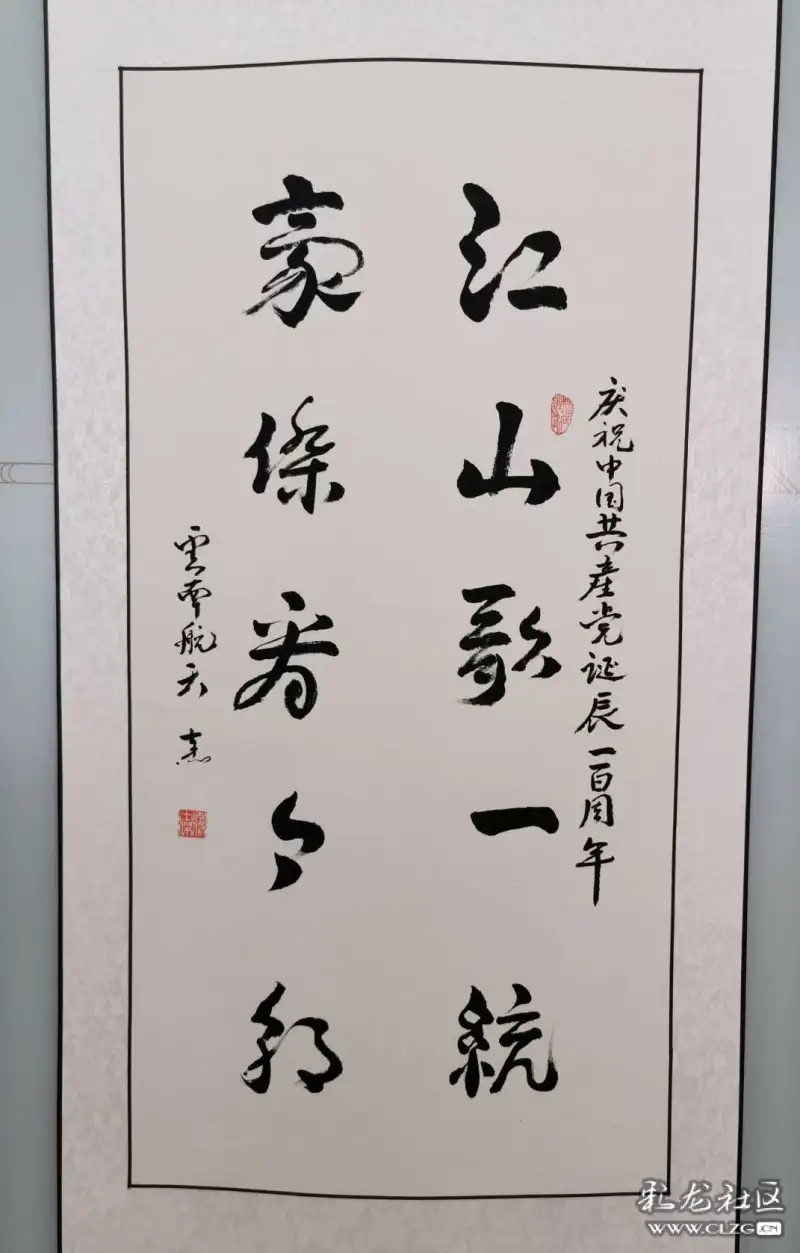 庆祝中国共產党诞辰一百周年
江山歌一统
豪傑看今朝
雲南航天
彩龙社区
WWW.CLZG.CN